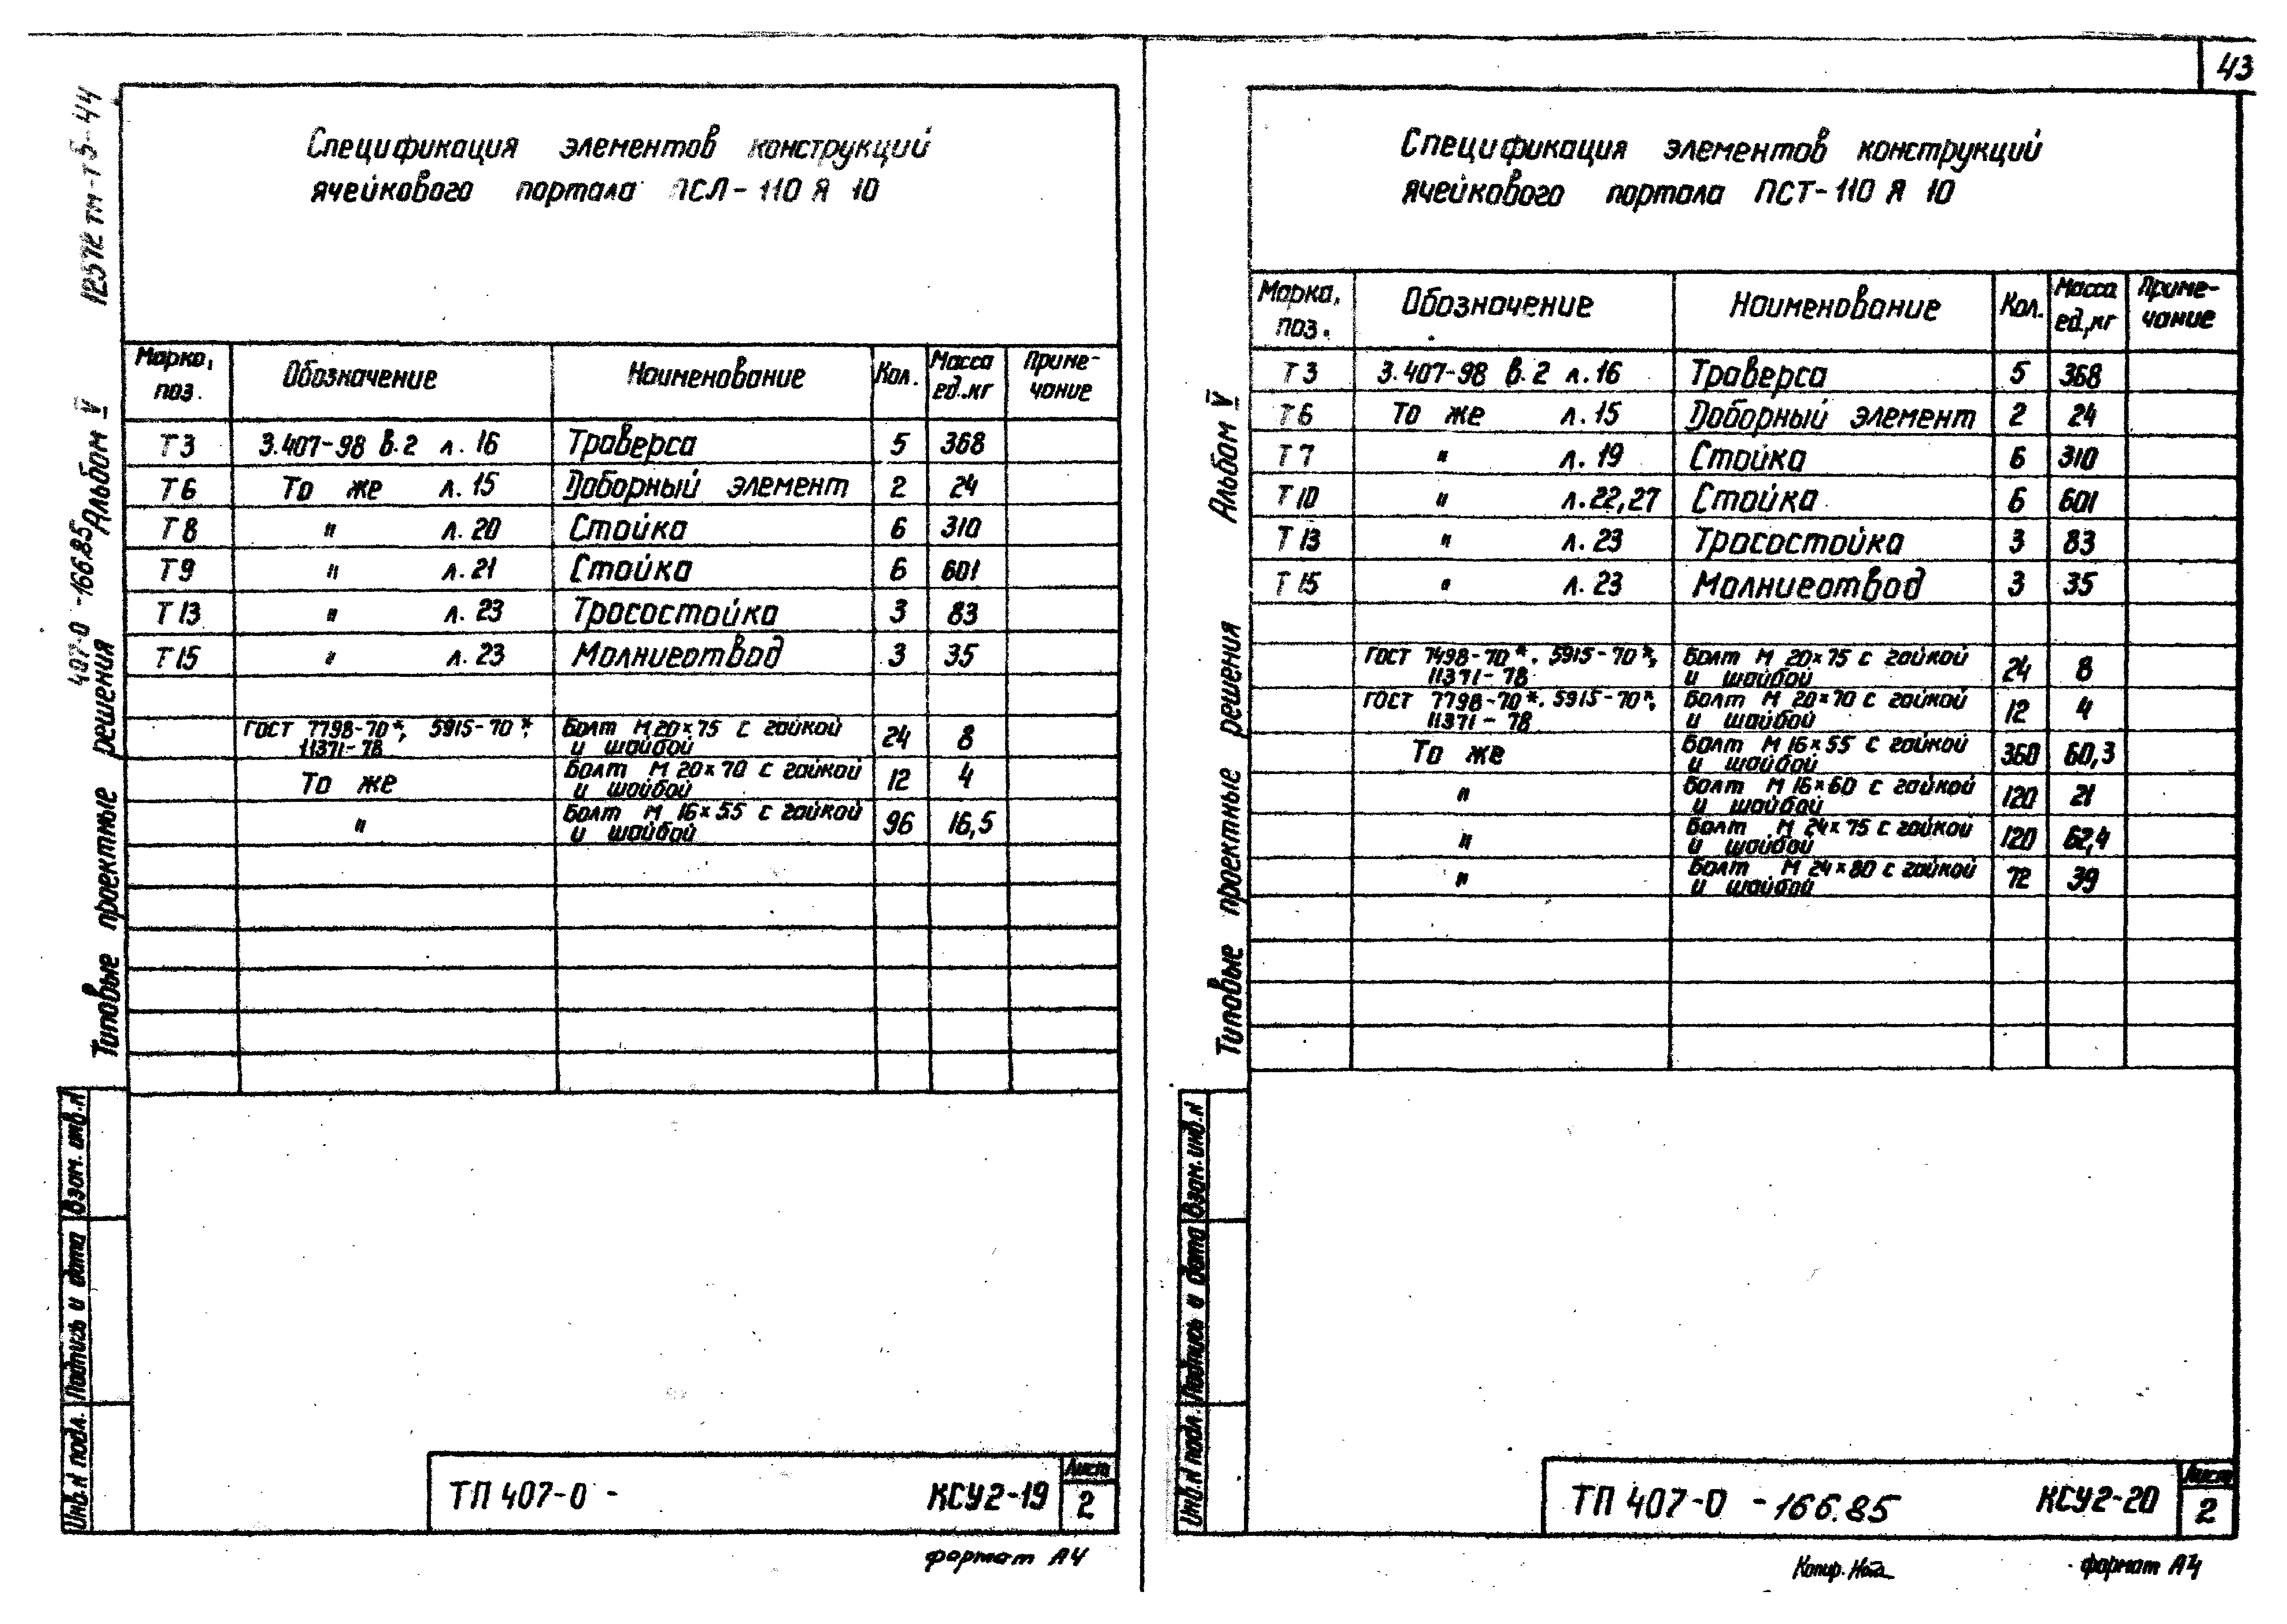 43
12572 тм-т5-44
Альбом V
407-0-166.85
Типовые проектные решения
Взам. инв. N
Подпись и дата
Инв. N подл.
Спецификация элементов конструкций
ячейкового портала ПСЛ-110 Я 10
Марка, поз. Обозначение Наименование Кол. Масса ед.,кг Приме-чание
Т3 3.407-98 в.2 л.16 Траверса 5 368
Т6 То же л.15 Доборный элемент 2 24
Т8 " л.20 Стойка 6 310
Т9 " л.21 Стойка 6 601
Т13 " л.23 Тросостойка 3 83
Т15 " л.23 Молниеотвод 3 35
ГОСТ 7798-70*, 5915-70*, Болт М 20×75 с гайкой
11371-78 и шайбой 24 8
То же Болт М 20×70 с гайкой
и шайбой 12 4
" Болт М 16×55 с гайкой
и шайбой 96 16,5
ТП 407-0 - КСУ2-19 Лист 2
формат А4
Альбом V
Типовые проектные решения
Взам. инв. N
Подпись и дата
Инв. N подл.
Спецификация элементов конструкций
ячейкового портала ПСТ-110 Я 10
Марка, поз. Обозначение Наименование Кол. Масса ед.,кг Приме-чание
Т3 3.407-98 в.2 л.16 Траверса 5 368
Т6 То же л.15 Доборный элемент 2 24
Т7 " л.19 Стойка 6 310
Т10 " л.22,27 Стойка 6 601
Т13 " л.23 Тросостойка 3 83
Т15 " л.23 Молниеотвод 3 35
ГОСТ 7498-70*. 5915-70*, Болт М 20×75 с гайкой
11371-78 и шайбой 24 8
ГОСТ 7798-70*. 5915-70*, Болт М 20×70 с гайкой
11371-78 и шайбой 12 4
То же Болт М 16×55 с гайкой
и шайбой 360 60,3
" Болт М 16×60 с гайкой
и шайбой 120 21
" Болт М 24×75 с гайкой
и шайбой 120 62,4
" Болт М 24×80 с гайкой
и шайбой 72 39
ТП 407-0 -166.85 КСУ2-20 Лист 2
Копир. формат А4